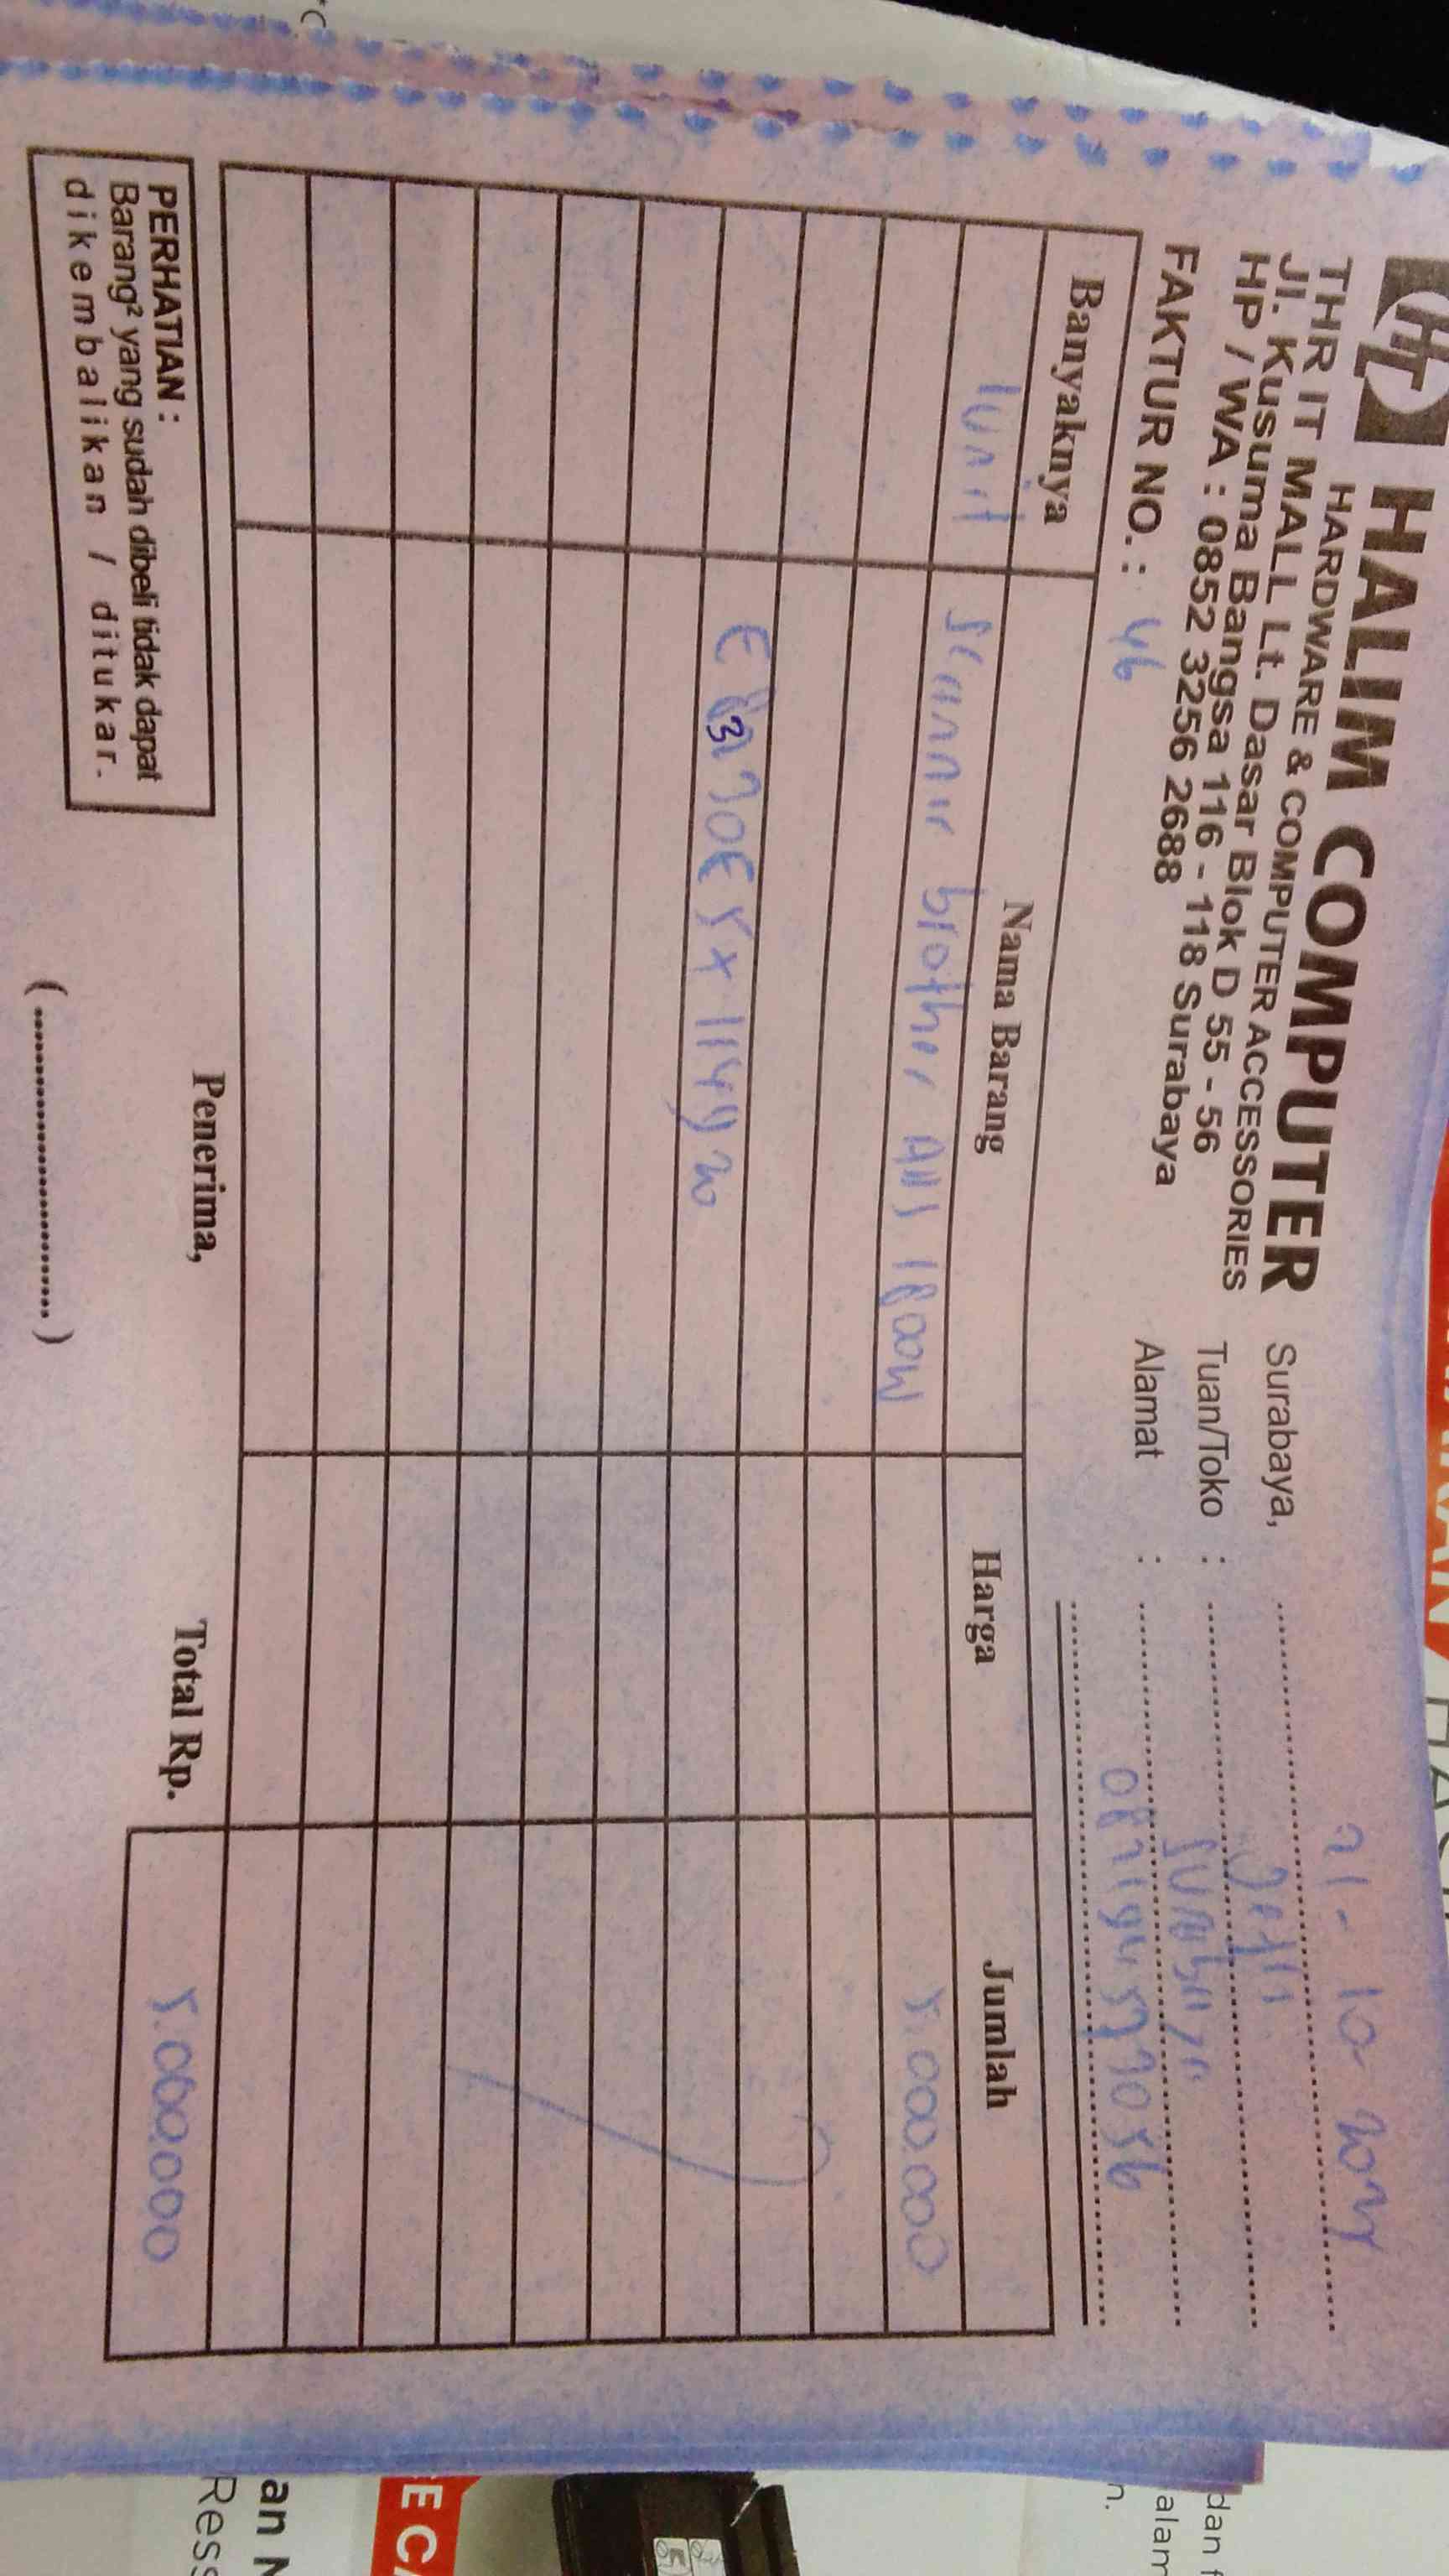 HL HALIM COMPUTER
HARDWARE & COMPUTER ACCESSORIES
THR IT MALL Lt. Dasar Blok D 55 - 56
Jl. Kusuma Bangsa 116 - 118 Surabaya
HP / WA : 0852 3256 2688
FAKTUR NO. : 46
Surabaya, 21-10-2024
Tuan/Toko :
Alamat : Surabaya
Banyaknya Nama Barang Harga Jumlah
1 unit Scanner brother ADS 1800W 5.000.000
Total Rp. 5.000.000
Penerima,
(..............................)
PERHATIAN :
Barang² yang sudah dibeli tidak dapat
dikembalikan / ditukar.
E CA
an
Ress
dan
alam
n.